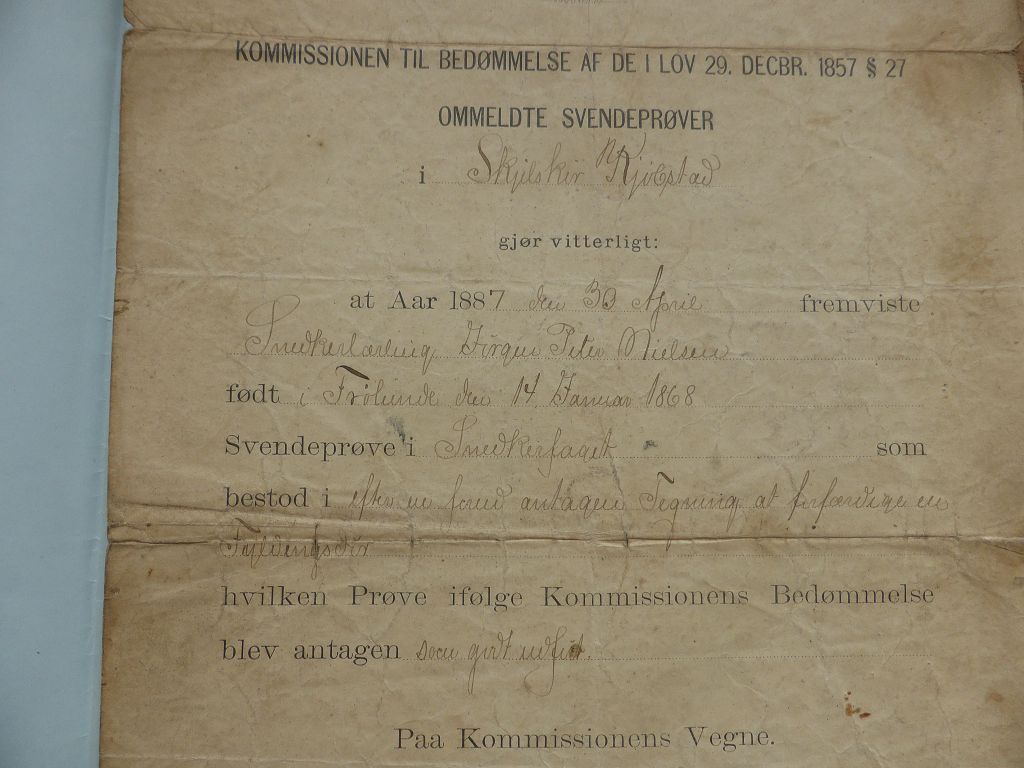 KOMMISSIONEN TIL BEDØMMELSE AF DE I LOV 29. DECBR. 1857 § 27
OMMELDTE SVENDEPRØVER
i Skjelskør Kjøbstad
gjør vitterligt:
at Aar 1887 den 30 April fremviste
Snedkerlærling Jörgen Peter Nielsen
født i Frölunde den 14 Januar 1868
Svendeprøve i Snedkerfaget som
bestod i efter en forud antagen Tegning at forfærdige en
Fyldingsdör
hvilken Prøve ifølge Kommissionens Bedømmelse
blev antagen som godt udført.
Paa Kommissionens Vegne.